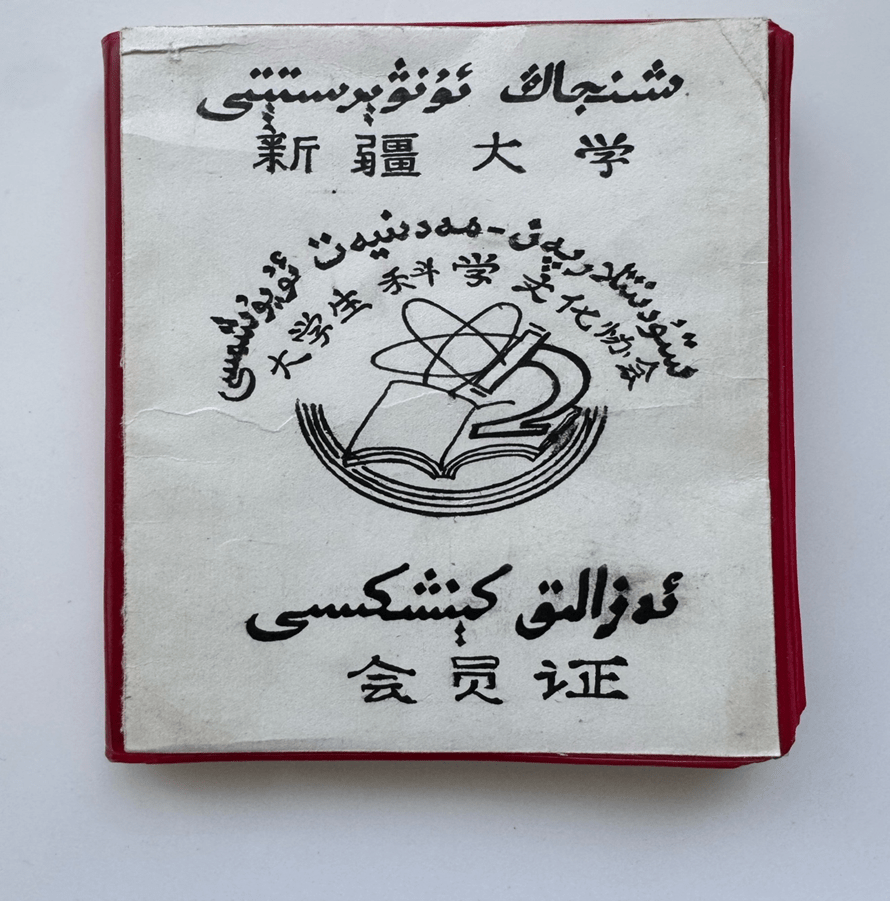 شىنجاڭ ئۇنىۋېرسىتېتى
新疆大学
ئىلىم-پەن مەدەنىيەت ئۇيۇشمىسى
大学生科学文化协会
ئەزالىق كىنىشكىسى
会员证